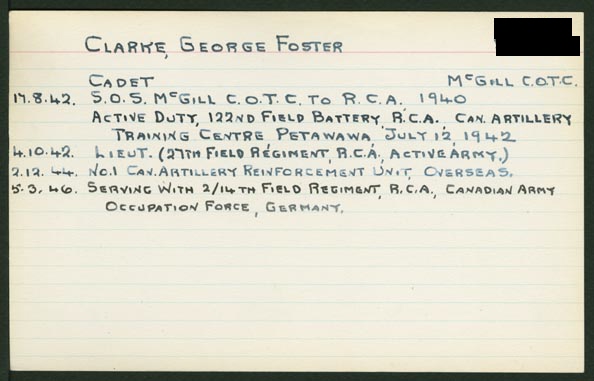 CLARKE, GEORGE FOSTER
CADET McGILL C.O.T.C.
17.8.42. S.O.S. McGILL C.O.T.C. TO R.C.A. 1940
ACTIVE DUTY, 122ND FIELD BATTERY R.C.A. CAN. ARTILLERY
TRAINING CENTRE PETAWAWA, JULY 12, 1942
4.10.42. LIEUT. (27TH FIELD REGIMENT, R.C.A., ACTIVE ARMY.)
2.12.44. NO.1 CAN. ARTILLERY REINFORCEMENT UNIT, OVERSEAS.
5.3.46. SERVING WITH 2/14TH FIELD REGIMENT, R.C.A., CANADIAN ARMY
OCCUPATION FORCE, GERMANY.